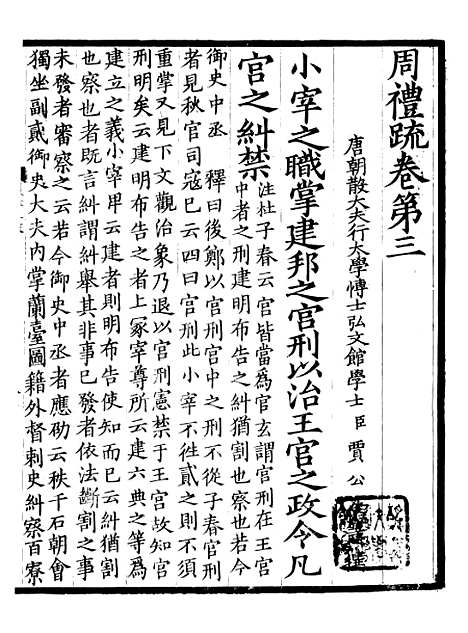 周禮疏卷第三
唐朝散大夫行大學博士弘文館學士臣賈公
小宰之職掌建邦之宫刑以治王宫之政令凡
宫之糾禁
注杜子春云宫皆當爲官玄謂宫刑在王宫
中者之刑建明布告之糾猶割也察也若今
御史中丞 釋曰後鄭以宫刑宫中之刑不從子春官刑
者見秋官司寇已云四曰官刑此小宰不徃貳之則不須
重掌又見下文觀治象乃退以宫刑憲禁于王宫故知宫
刑明矣云建明布告之者上冢宰尊所云建六典之等爲
建立之義小宰卑云建者則明布告使知而已云糾猶割
也察也者既言糾謂糾舉其非事已發者依法斷割之事
未發者審察之云若今御史中丞者應劭云秩千石朝會
獨坐副貳御史大夫内掌蘭臺圖籍外督刺史糾察百寮